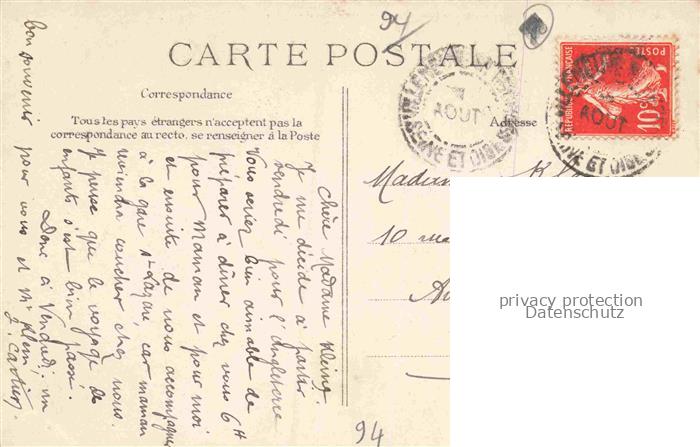 94
CARTE POSTALE
Correspondance
Tous les pays étrangers n'acceptent pas la
correspondance au recto, se renseigner à la Poste
Adresse
RÉPUBLIQUE FRANÇAISE
POSTES
10c
AOUT
SEINE ET OISE
AOUT
SEINE ET OISE
Chère Madame Klein,
Je me décide à partir
vendredi pour l'Angleterre
Vous seriez bien aimable de
préparer à dîner chez vous 6H
pour Maman et pour moi
et ensuite de nous accompagner
à la gare St Lazare, car maman
reviendra coucher chez vous.
Je pense que le voyage des
enfants s'est bien passé.
Donc à Vendredi, un
bon souvenir pour vous et Mr Klein
J. Cartier
Madame K
10 rue
privacy protection
Datenschutz
94